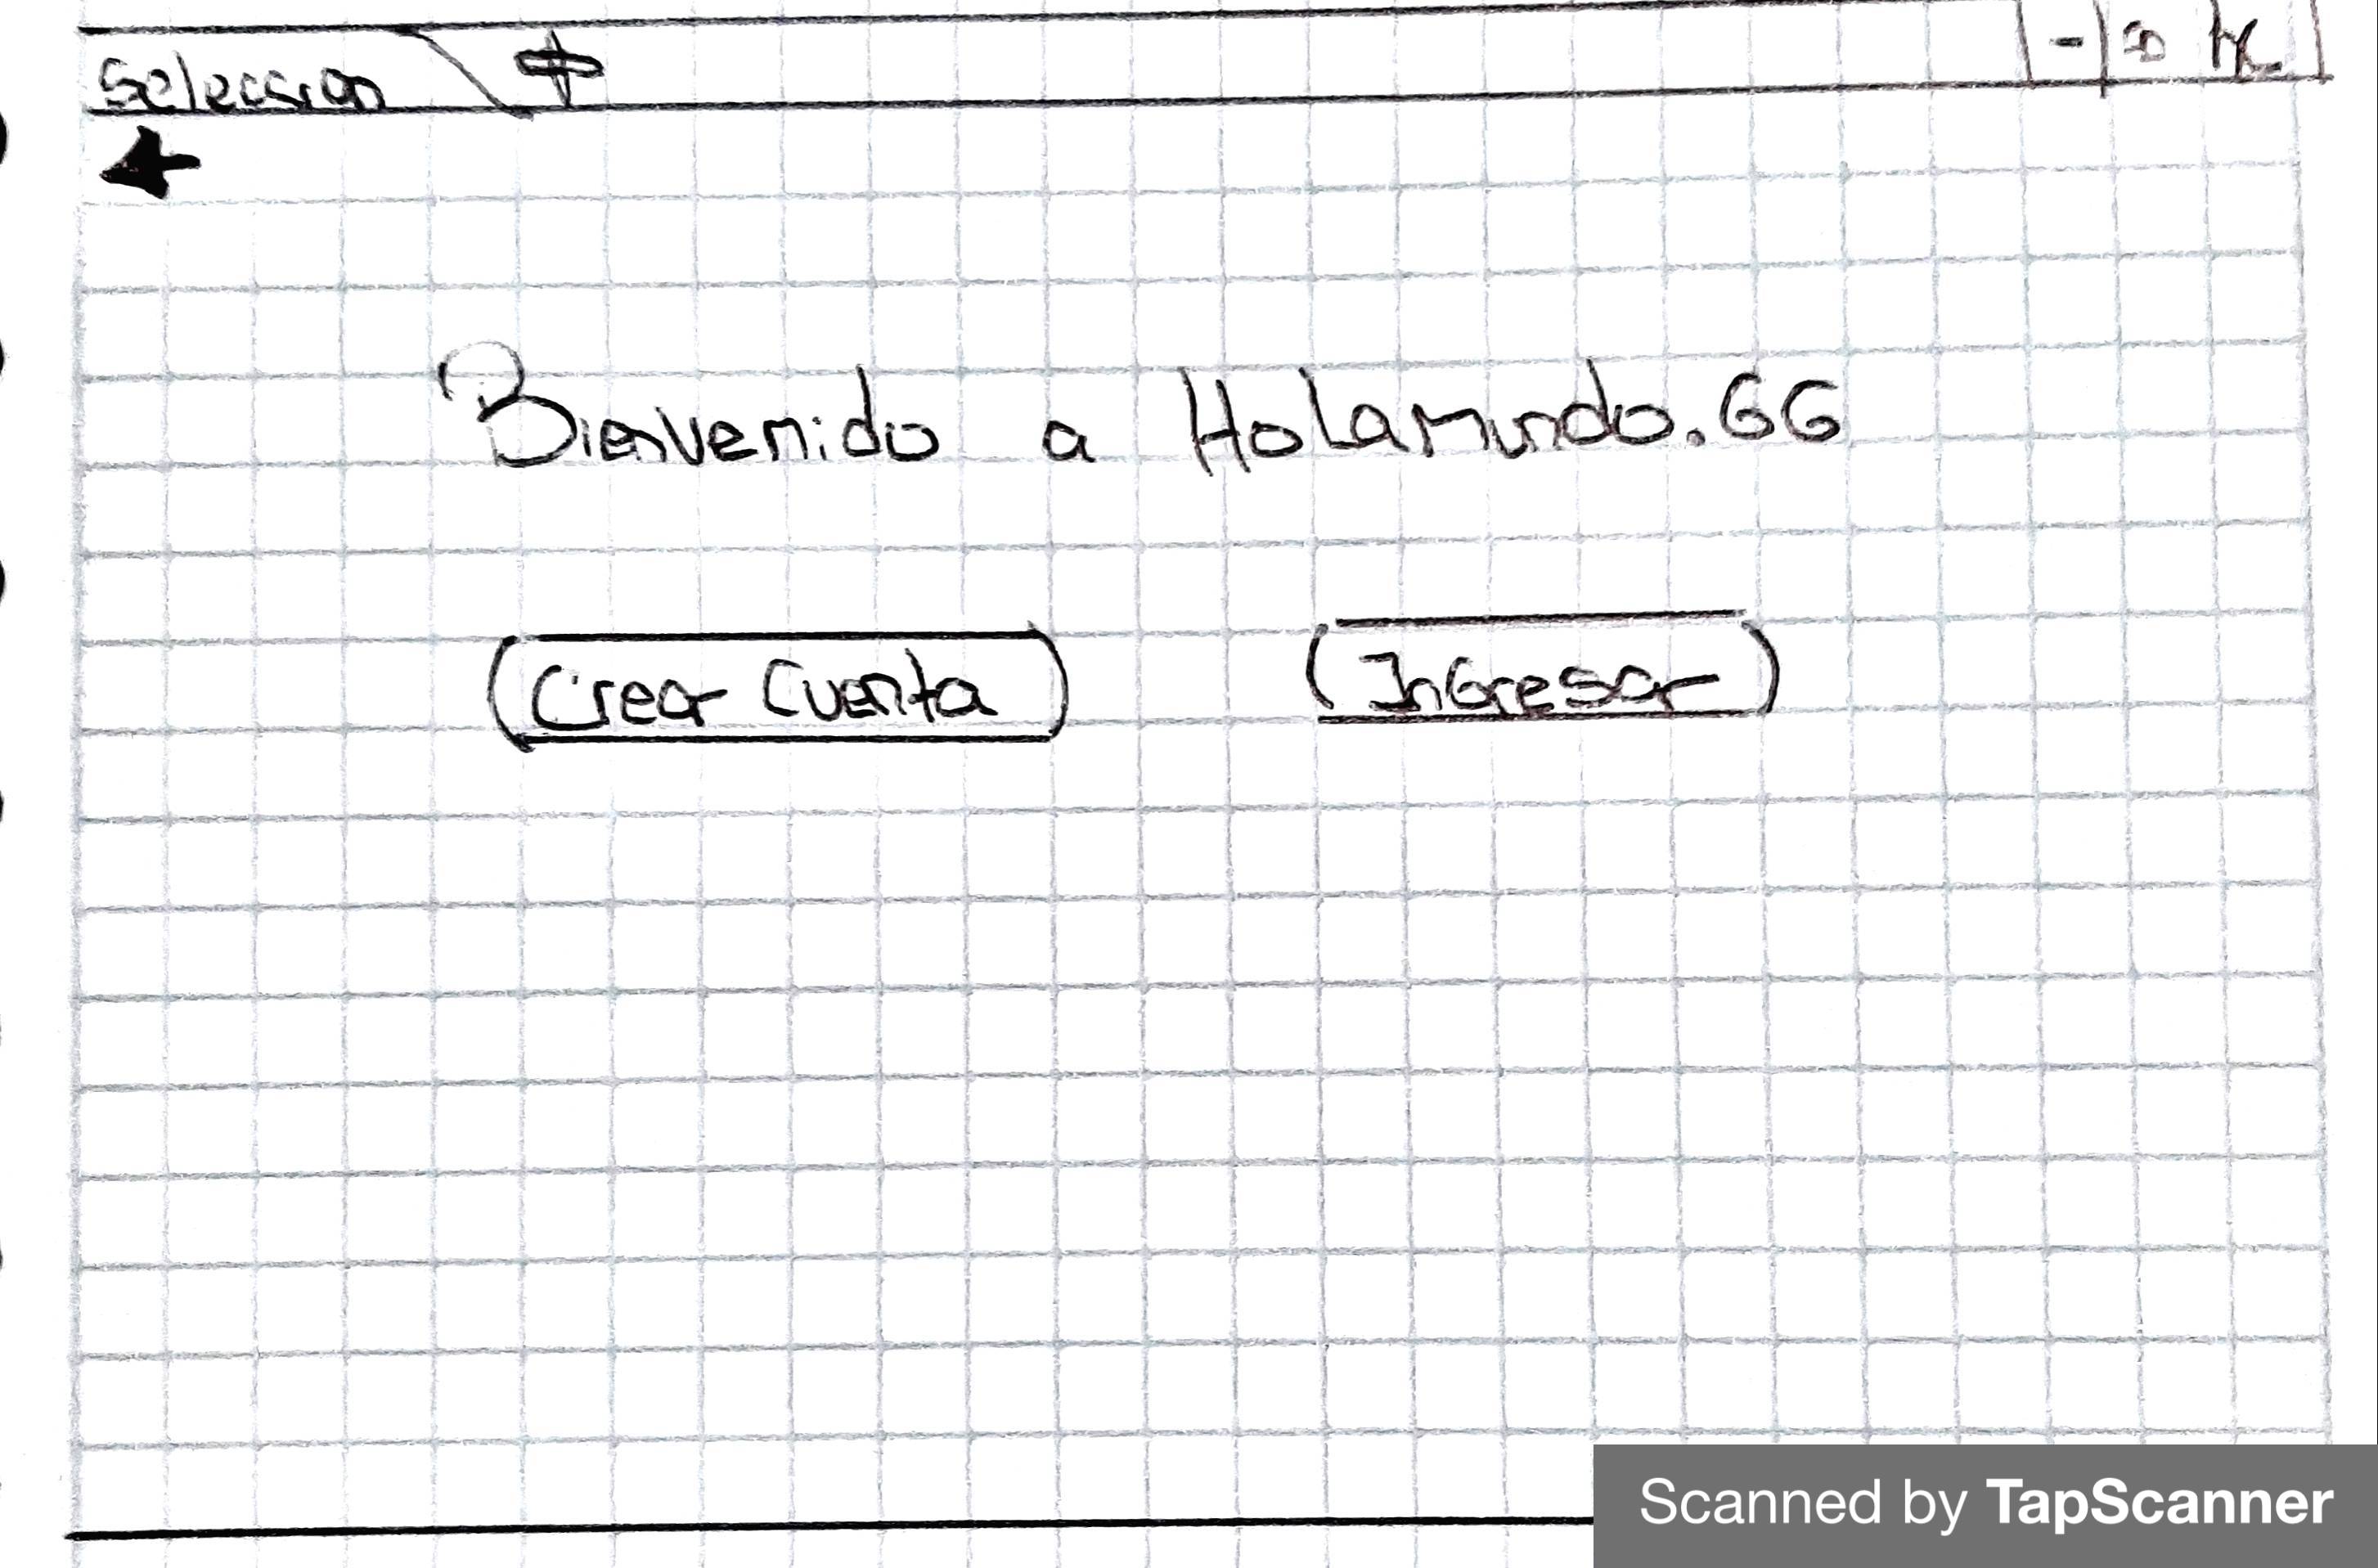 Seleccsion
Bienvenido a Holamundo.GG
Crear Cuenta
InGresar
Scanned by TapScanner